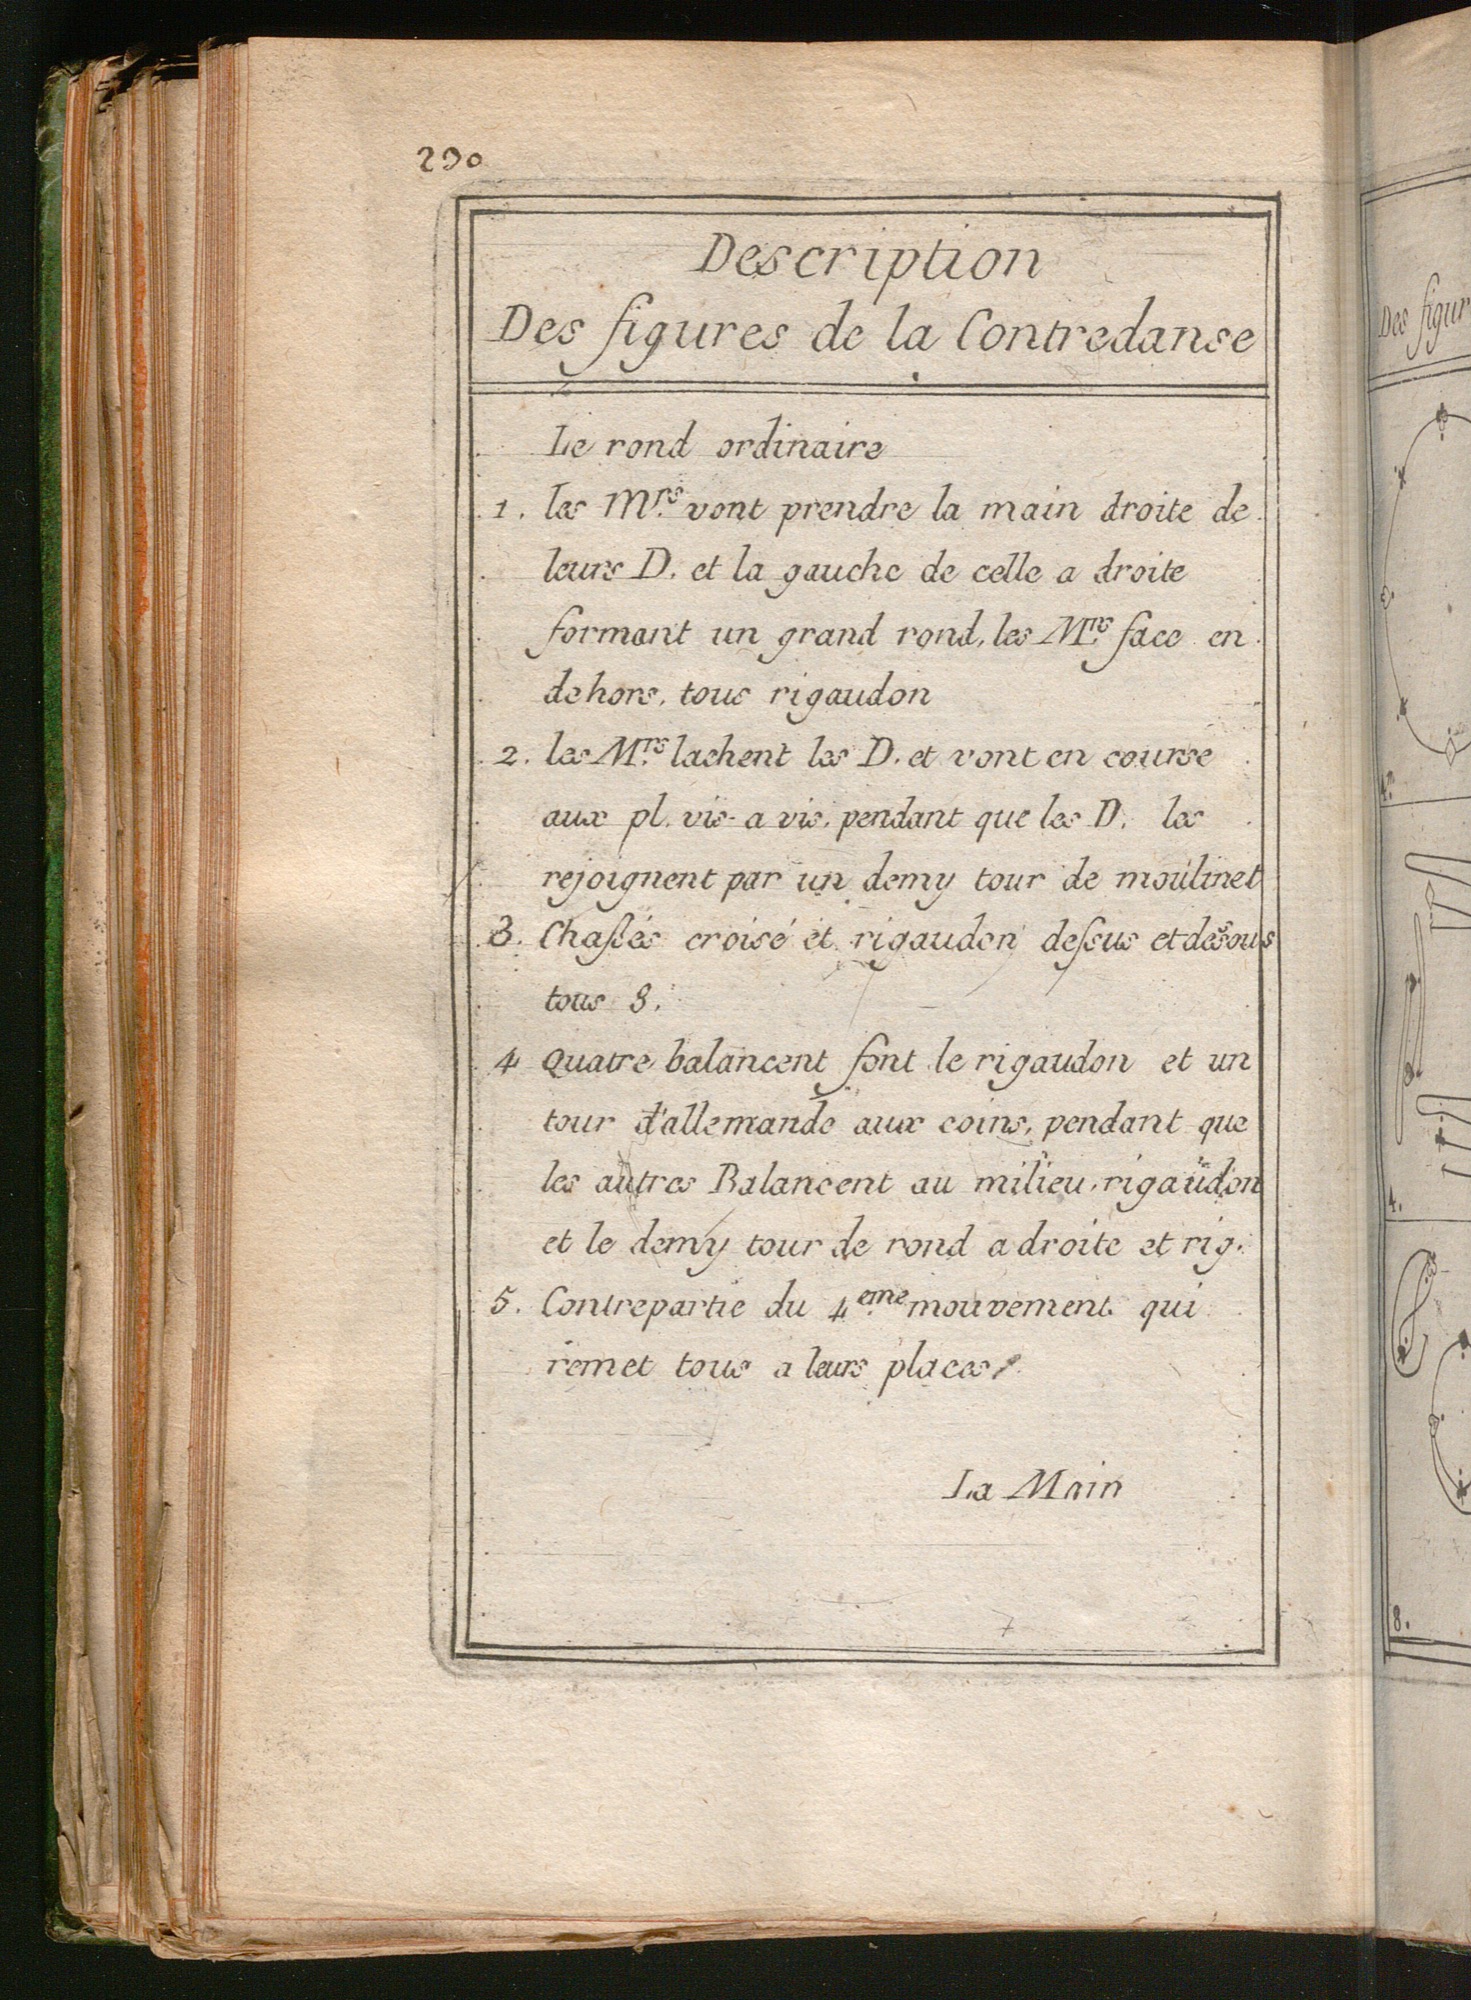 290
Description
Des figures de la Contredanse
Le rond ordinaire
1. les Mrs. vont prendre la main droite de
leurs D. et la gauche de celle a droite
formant un grand rond, les Mrs. face en
dehors, tous rigaudon
2. les Mrs. lachent les D. et vont en course
aux pl. vis-a vis, pendant que les D. les
rejoignent par un demy tour de moulinet
3. Chaßés croisé et rigaudon deſsus et desous
tous 8.
4 Quatre balancent font le rigaudon et un
tour d'allemande aux coins, pendant que
les autres Balancent au milieu, rigaudon
et le demy tour de rond a droite et rig.
5. Contrepartie du 4eme. mouvement qui
remet tous a leurs places
La Main
Des figur
4.
8.